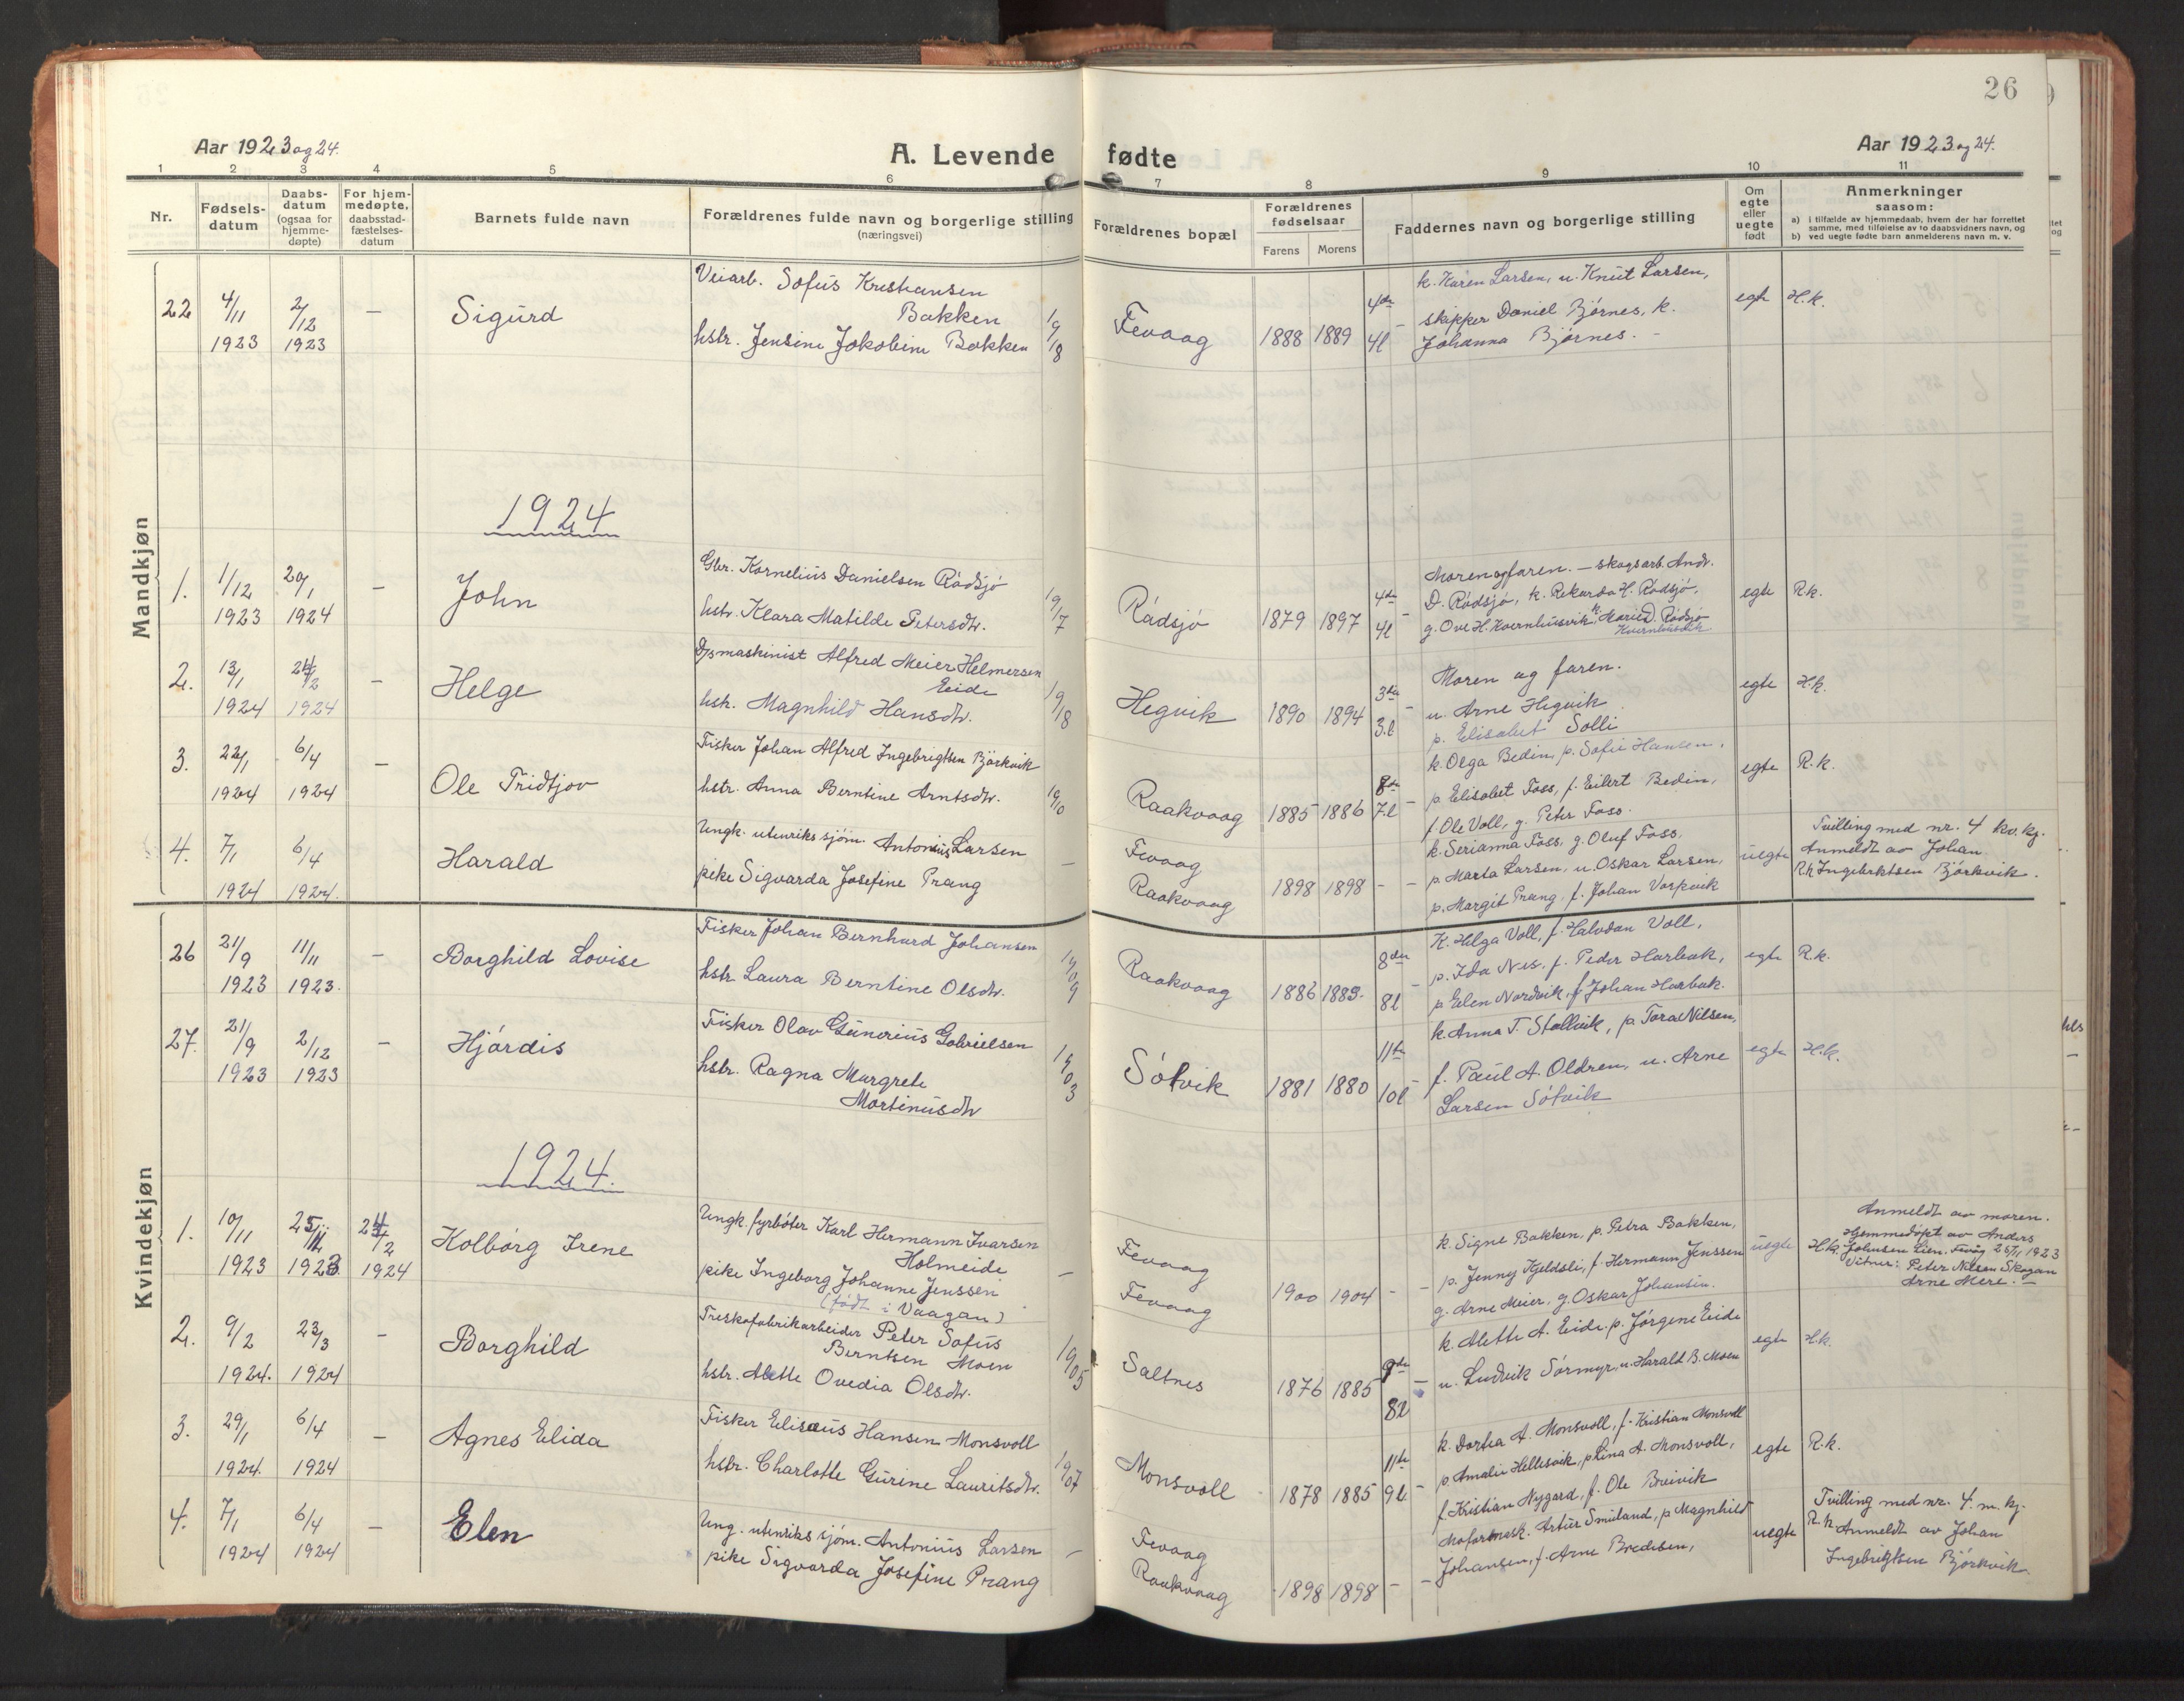 26
Aar 1923 og 24.
A. Levende fødte
Aar 1923 og 24.
1 2 3 4 5 6 7 8 9 10 11
Nr.
Fødsels-
datum
Daabs-
datum
(ogsaa for
hjemme-
døpte)
For hjem-
medøpte,
daabsstad-
fæstelses-
datum
Barnets fulde navn
Forældrenes fulde navn og borgerlige stilling
(næringsvei)
Forældrenes bopæl
Forældrenes
fødselsaar
Farens Morens
Faddernes navn og borgerlige stilling
Om
egte
eller
uegte
født
Anmerkninger
saasom:
a) i tilfælde av hjemmedaab, hvem der har forrettet
samme, med tilføielse av to daabsvidners navn, og
b) ved uegte fødte barn anmelderens navn m. v.
Mandkjøn
22 4/11 1923 2/12 1923 — Sigurd
Veiarb. Sofus Kristiansen
Bakken
hstr. Jensine Jakobine Bakken
19/18
Fevaag 1888 1889 4de 4l
k. Karen Larsen, u. Knut Larsen,
skipper Daniel Bjørnes, k.
Johanna Bjørnes. -
egte H.k.
1924
1. 1/12 1923 20/1 1924 — John
Gbr. Kornelius Danielsen Rødsjø
hstr. Klara Matilde Petersdtr.
19/17
Rødsjø 1879 1897 4de 4l
Moren og faren. — skogsarb. Andr.
D. Rødsjø, k. Rikarda H. Rødsjø,
g. Ove H. Kvernhusvik, k. Marie D. Rødsjø
Kvernhusvik
egte R.k.
2. 13/1 1924 24/2 1924 — Helge
D/s maskinist Alfred Meier Helmersen
Eide
hstr. Magnhild Hansdtr.
19/18
Hegvik 1890 1894 3de 3.l
Moren og faren.
u. Arne Hegvik
p. Elisabet Solli
egte H.k.
3. 22/1 1924 6/4 1924 — Ole Fridtjov
Fisker Johan Alfred Ingebrigtsen Bjørkvik
hstr. Anna Berntine Arntsdtr.
19/10
Raakvaag 1885 1886 8de 7.l
k. Olga Bedin, p. Sofie Hansen,
p. Elisabet Foss, f. Eilert Bedin,
f. Ole Voll, g. Peter Foss.
egte R.k.
4. 7/1 1924 6/4 1924. Harald
Ungk. utenriks sjøm. Antonius Larsen
pike Sigvarda Josefine Prang
—
Fevaag
Raakvaag
1898 1898 - -
k. Serianna Foss, g. Oluf Foss.
p. Marta Larsen, u. Oskar Larsen,
p. Margit Prang, f. Johan Vorpvik
uegte
Tvilling med nr. 4 kv. kj.
Anmeldt av Johan
R.k. Ingebriktsen Bjørkvik.
Kvindekjøn
26 21/9 1923 11/11 1923. — Borghild Lovise
Fisker Johan Bernhard Johansen
hstr. Laura Berntine Olsdtr.
19/09
Raakvaag 1886 1889. 8de 8l
K. Helga Voll, f. Halvdan Voll,
p. Ida Nes. f. Peder Harbak,
p Elen Nordvik, f Johan Harbak.
egte R.k.
27. 21/9 1923 2/12 1923 — Hjørdis
Fisker Olav Gunerius Gabrielsen
hstr. Ragna Margrete
Martinusdtr
19/03
Søtvik 1881 1880 11te 10l
k. Anna T. Stallvik, p. Tora Nilsen,
f. Paul A. Oldren, u. Arne
Larsen Søtvik
egte H.k.
1924.
1. 10/11 1923 25/11 1923 24/2 1924 Kolbørg Irene
Ungk. fyrbøter Karl Hermann Ivarsen
Holmeide
pike Ingeborg Johanne Jenssen
(født i Vaagan)
—
Fevaag
Fevaag
1900 1904 - -
k. Signe Bakken, p. Petra Bakken,
p. Jenny Kjeldsli, f. Hermann Jenssen
g. Arne Meier, g. Oskar Johansen.
uegte
Anmeldt av moren.
Hjemmedøpt av Anders
H.k. Johnsen Lien. Fevåg 25/11 1923
Vitner: Peter Nilsen Skogan
Arne Mere. —
2. 9/2 1924. 23/3 1924 — Borghild
Treskofabrikarbeider Peter Sofus
Berntsen Moen
hstr. Alette Ovedia Olsdtr.
19/05
Saltnes 1876 1885 9de 8l
k. Alette A. Eide. p. Jørgene Eide
u. Ludvik Sørmyr, u. Harald B. Moen
egte H.k.
3. 29/1 1924. 6/4 1924 — Agnes Elida
Fisker Elisæus Hansen Monsvoll
hstr. Charlotte Gurine Lauritsdtr.
19/07
Monsvoll 1878 1885 11te 9l.
k. Dortea A. Monsvoll, f. Kristian Monsvoll
p. Amalie Hellesvik, p Lina A. Monsvoll,
f. Kristian Nygard, f. Ole Breivik
egte R.k.
4. 7/1 1924 6/4 1924 — Elen
Ung. utenriks sjøm. Antonius Larsen
pike Sigvarda Josefine Prang
—
Fevaag
Raakvaag
1898 1898 - -
Motormask. Artur Småland, p Magnhild
Johansen, f. Arne Bredesen,
uegte
Tvilling med nr. 4. m. kj.
R.k. Anmeldt av Johan
Ingebrigtsen Bjørkvik.